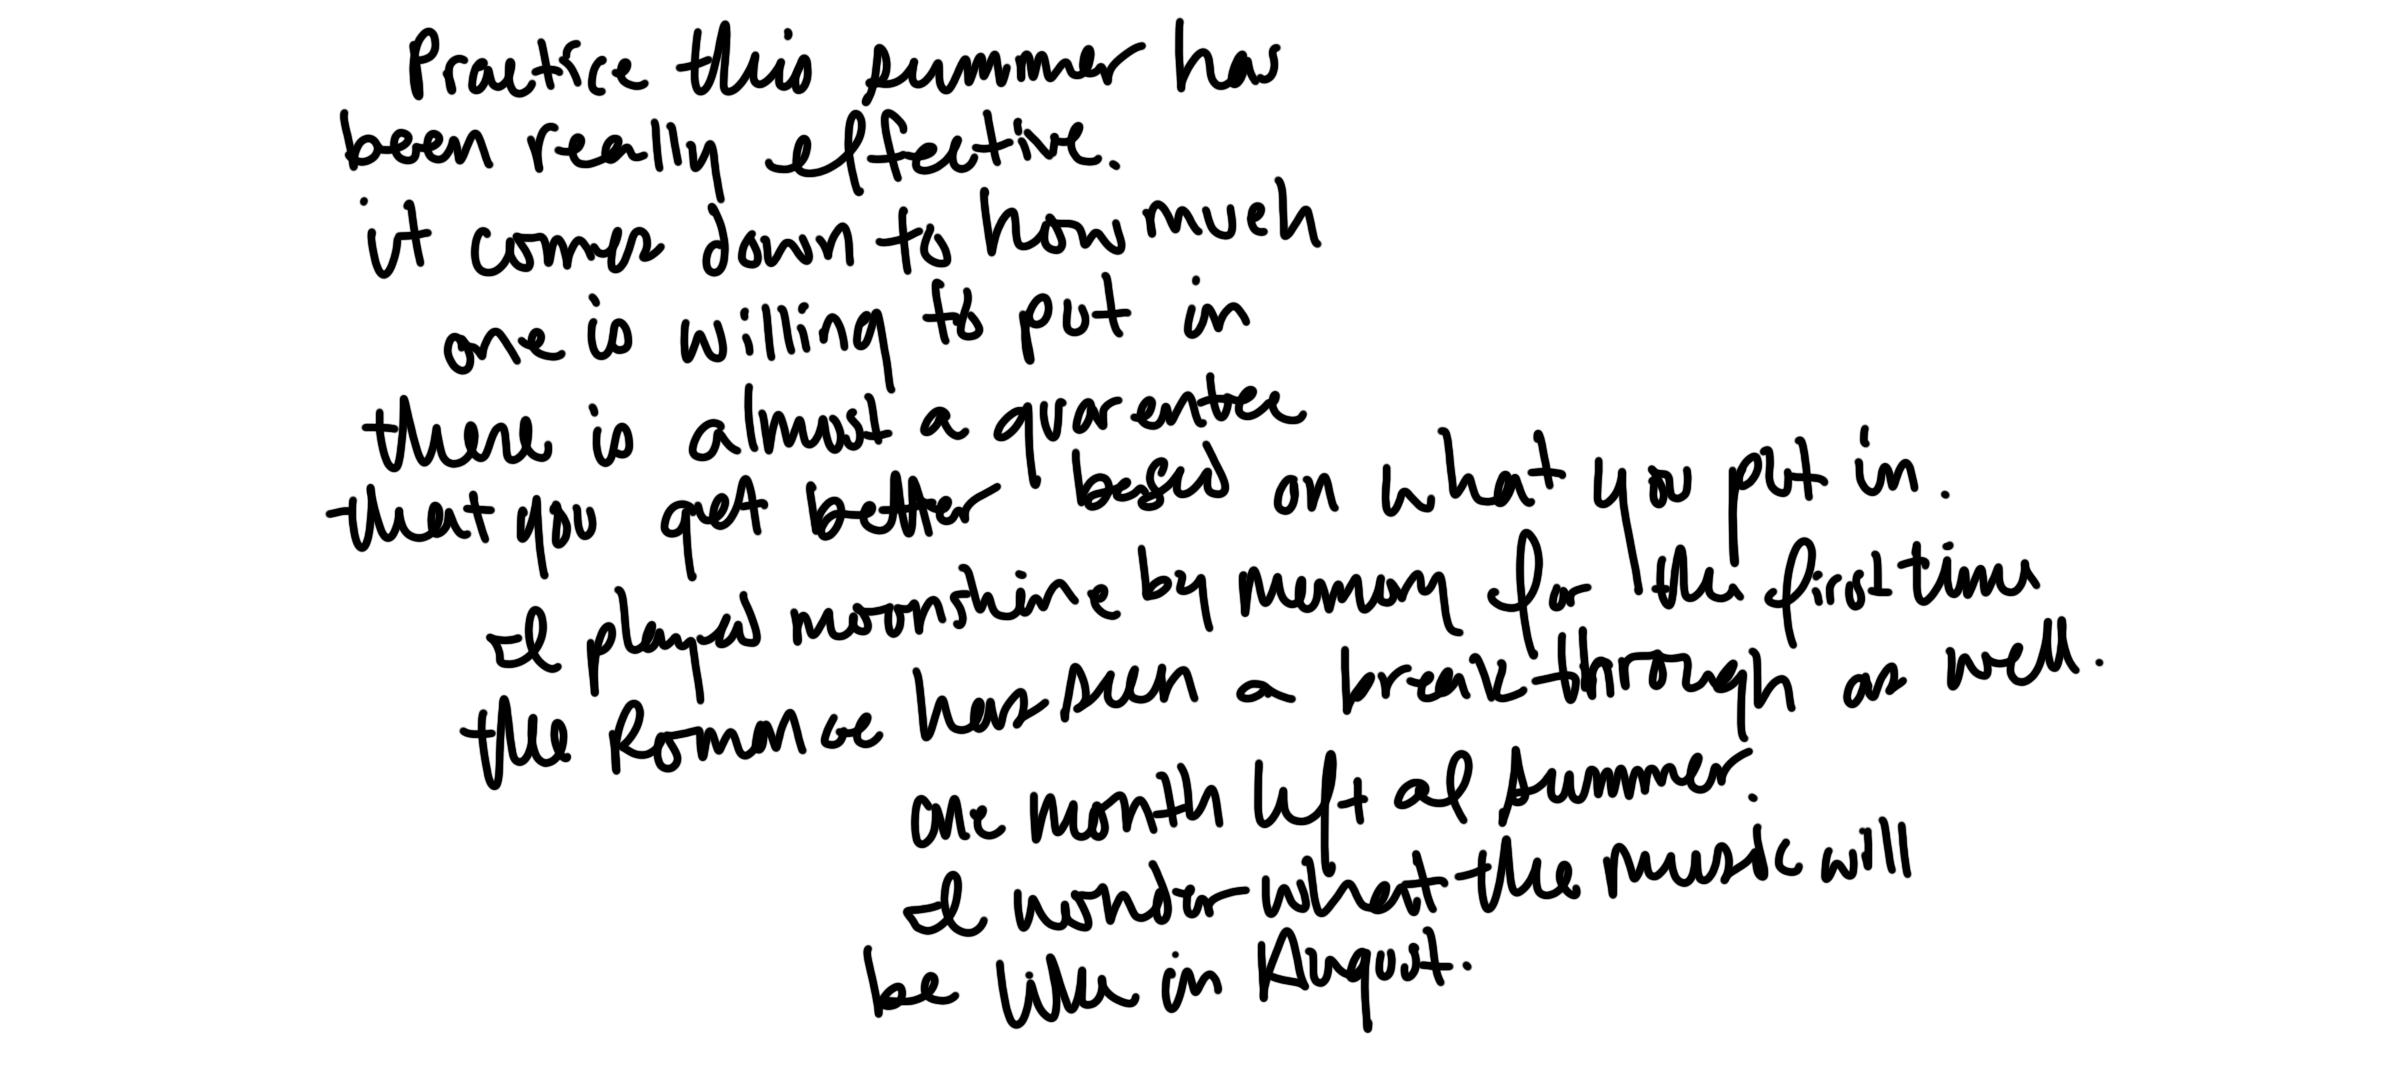 Practice this summer has
been really effective.
it comes down to how much
one is willing to put in
there is almost a quarentee
that you get better based on what you put in.
I played moonshine by memory for the first time
the Romance has seen a breakthrough as well.
one month left of summer.
I wonder what the music will
be like in August.